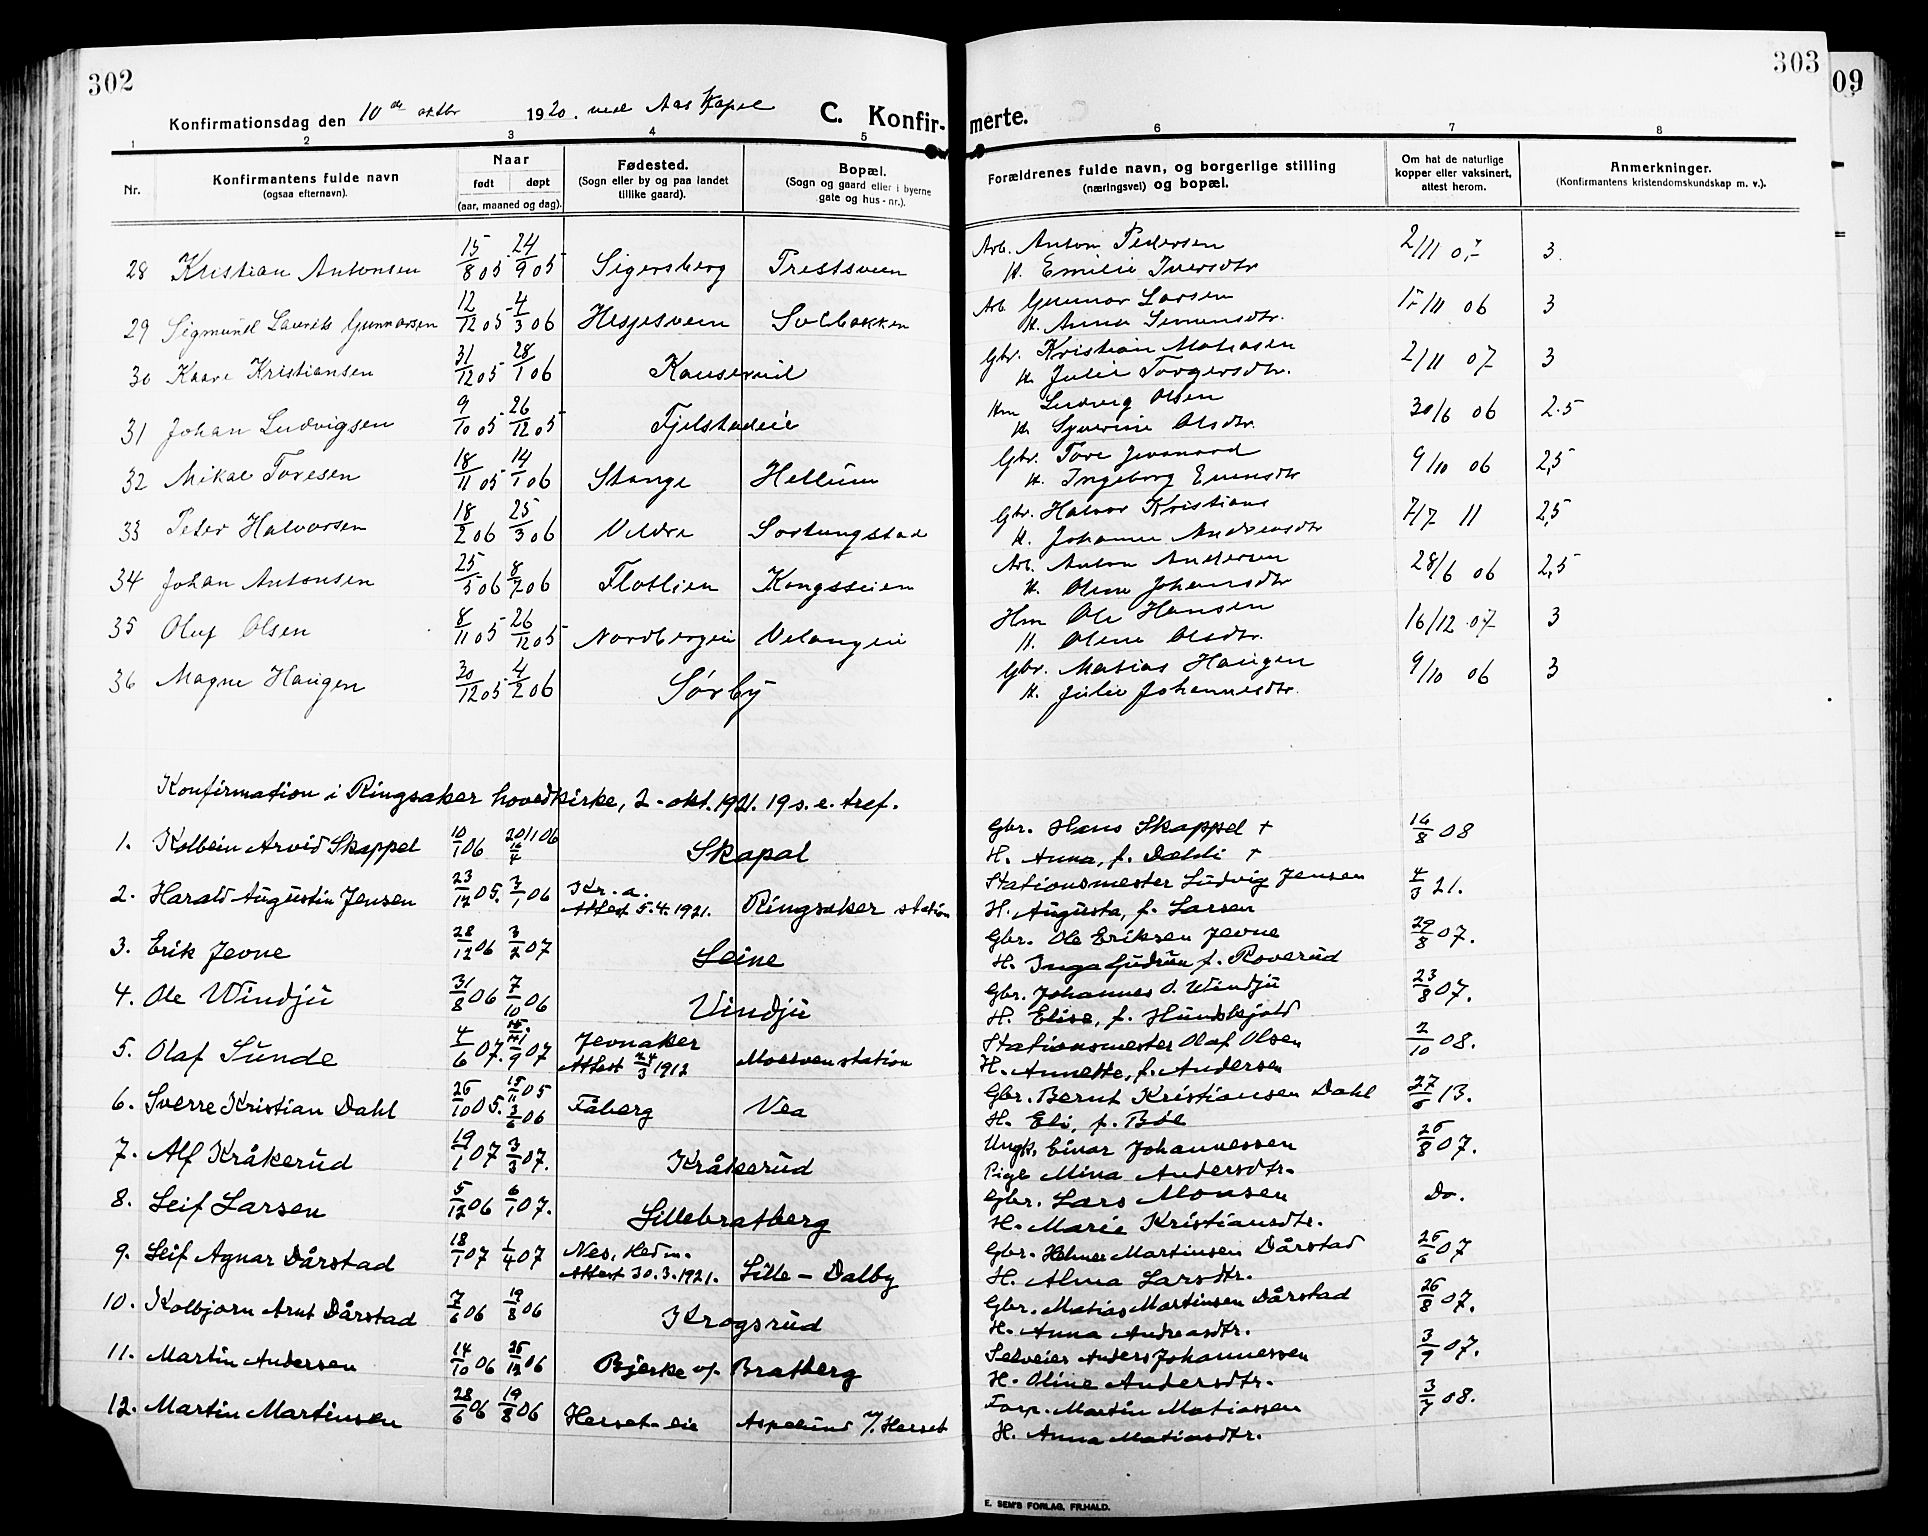 302
303
09
Konfirmationsdag den 10de oktbr 1920. ved Aas Kapel
C. Konfir-merte.
1 2 3 4 5 6 7 8
Nr.
Konfirmantens fulde navn
(ogsaa efternavn).
Naar
født døpt
(aar, maaned og dag).
Fødested.
(Sogn eller by og paa landet
tillike gaard).
Bopæl.
(Sogn og gaard eller i byerne
gate og hus-nr.).
Forældrenes fulde navn, og borgerlige stilling
(næringsvei) og bopæl.
Om hat de naturlige
kopper eller vaksinert,
attest herom.
Anmerkninger.
(Konfirmantens kristendomskundskap m. v.).
28 Kristian Antonsen 15/8 05 24/9 05 Sigersberg Trestsveen Arb. Anton Pedersen 2/11 3.
H. Emilie Iversdtr
29 Sigmund Laurits Gunnarsen 12/12 05 4/3 06 Hesjesveen Solbakken Arb. Gunnar Larsen 15/11 06 3
H. Anna Simensdtr.
30 Kaare Kristiansen 31/12 05 28/1 06 Kauserud Gbr. Kristian 2/11 07 3
H. Julie Torgersdtr.
31 Johan Ludvigsen 9/10 05 26/12 05 Fjelstadeie Hm Ludvig Olsen 30/6 06 2.5
H. Syverine Olsdtr.
32 Mikal Toresen 18/11 05 14/1 06 Stange Hellum Gbr. Tore Jevanord 9/10 06 2,5
H. Ingeborg Evensdtr
33 Peter Halvorsen 18/2 06 25/3 06 Veldre Sortungstad Gbr. Halvor Kristians 7/7 11 2,5
H. Johanne Andreasdtr
34 Johan Antonsen 25/5 06 8/7 06 Flotlien Kongsveien Arb. Anton Andersen 28/6 06 2,5
H. Oline Johansdtr
35 Oluf Olsen 8/11 05 26/12 05 Nordbergeie Velangeie Hm Ole Hansen 16/12 07 3
H. Oline Olsdtr.
36 Magne Haugen 30/12 05 4/2 06 Sørby Gbr. Matias Haugen 9/10 06 3
H. Julie Johannesdtr.
Konfirmation i Ringsaker hovedkirke, 2. okt. 1921. 19 s. e. tref.
1. Kolbein Arvid Skappel 10/1 06 20/1 06 Skapal Gbr. Hans Skappel + 16/8 08
H. Anna, f. Dæhli +
2. Harald Augustin Jensen 23/12 05. 3/1 06 Kr.a. Attest 5.4.1921. Ringsaker station Stationsmester Ludvig Jensen 4/3 21.
H. Augusta, f. Larsen
3. Erik Jevne 28/12 06 3/2 07 Seine Gbr. Ole Eriksen Jevne 29/8 07.
H. Inga Gudrun f. Roverud
4. Ole Windju 31/8 06 7/10 06 Vindju Gbr. Johannes O. Windju 23/8 07.
H. Elise, f. Hundskjold
5. Olaf Sunde 4/6 07. 15/9 07 Jevnaker Attest 24/3 1912 Moelven station Stationsmester Olaf Olsen 2/10 08.
H. Annette, f. Andersen
6. Sverre Kristian Dahl 26/10 05. 15/11 05 3/6 06 Fåberg Vea Gbr. Bernt Kristiansen Dahl 27/6 13.
H. Eli, f. Bøe
7. Alf Kråkerud 19/1 07 3/3 07. Kråkerud Ungk. Einar Johannessen 26/8 07.
Pige Mina Andersdtr.
8. Leif Larsen 5/12 06 6/1 07. Lillebratberg Gbr. Lars Monsen Do.
H. Marie Kristiansdtr.
9. Leif Agnar Dårstad 18/1 07 1/4 07 Nes, Hedm. Attest 30.3.1921. Lille-Dalby Gbr. Helmer Martinsen Dårstad 26/6 07
H. Alma Larsdtr.
10. Kolbjørn Arnt Dårstad 7/6 06 19/8 06 Krogsrud Gbr. Matias Martinsen Dårstad 26/8 07.
H. Anna Andreasdtr.
11. Martin Andersen 14/10 06 26/12 06 Bjerke u/ Bratberg Selveier Anders Johannessen 3/9 07.
H. Oline Andersdtr.
12. Martin Martinsen 28/6 06 19/8 06 Herset-eie Aspelund u/ Herset Forp. Martin Matiassen 3/7 08.
H. Anna Matiasdtr.
E. SEM'S FORLAG, FR.HALD.